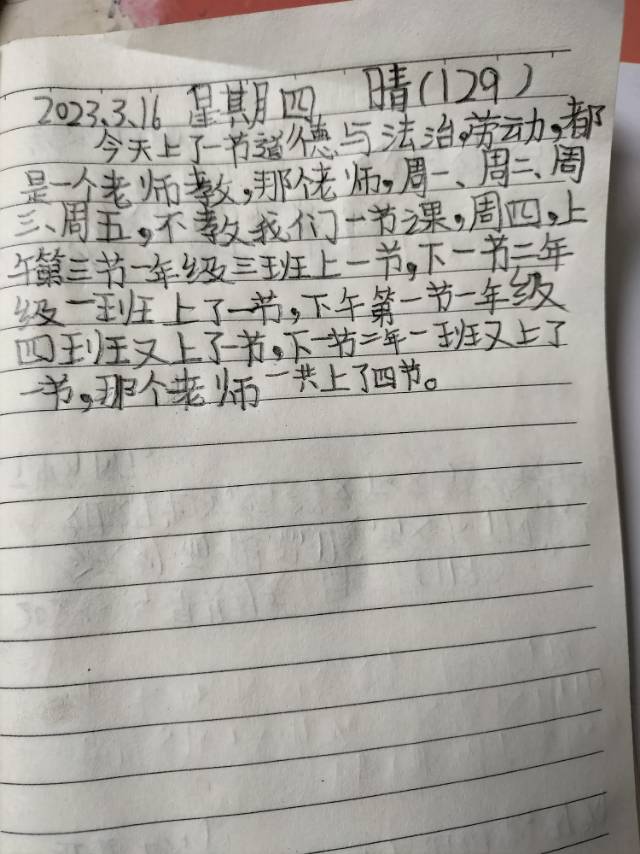 2023.3.16 星期四 晴(129)
今天上了一节道德与法治,劳动,都
是一个老师教,那个老师,周一、周二、周
三、周五,不教我们一节课,周四,上
午第三节一年级三班上一节,下一节二年
级一班上了一节,下午第一节一年级
四班又上了一节,下一节二年一班又上了
一节,那个老师一共上了四节。